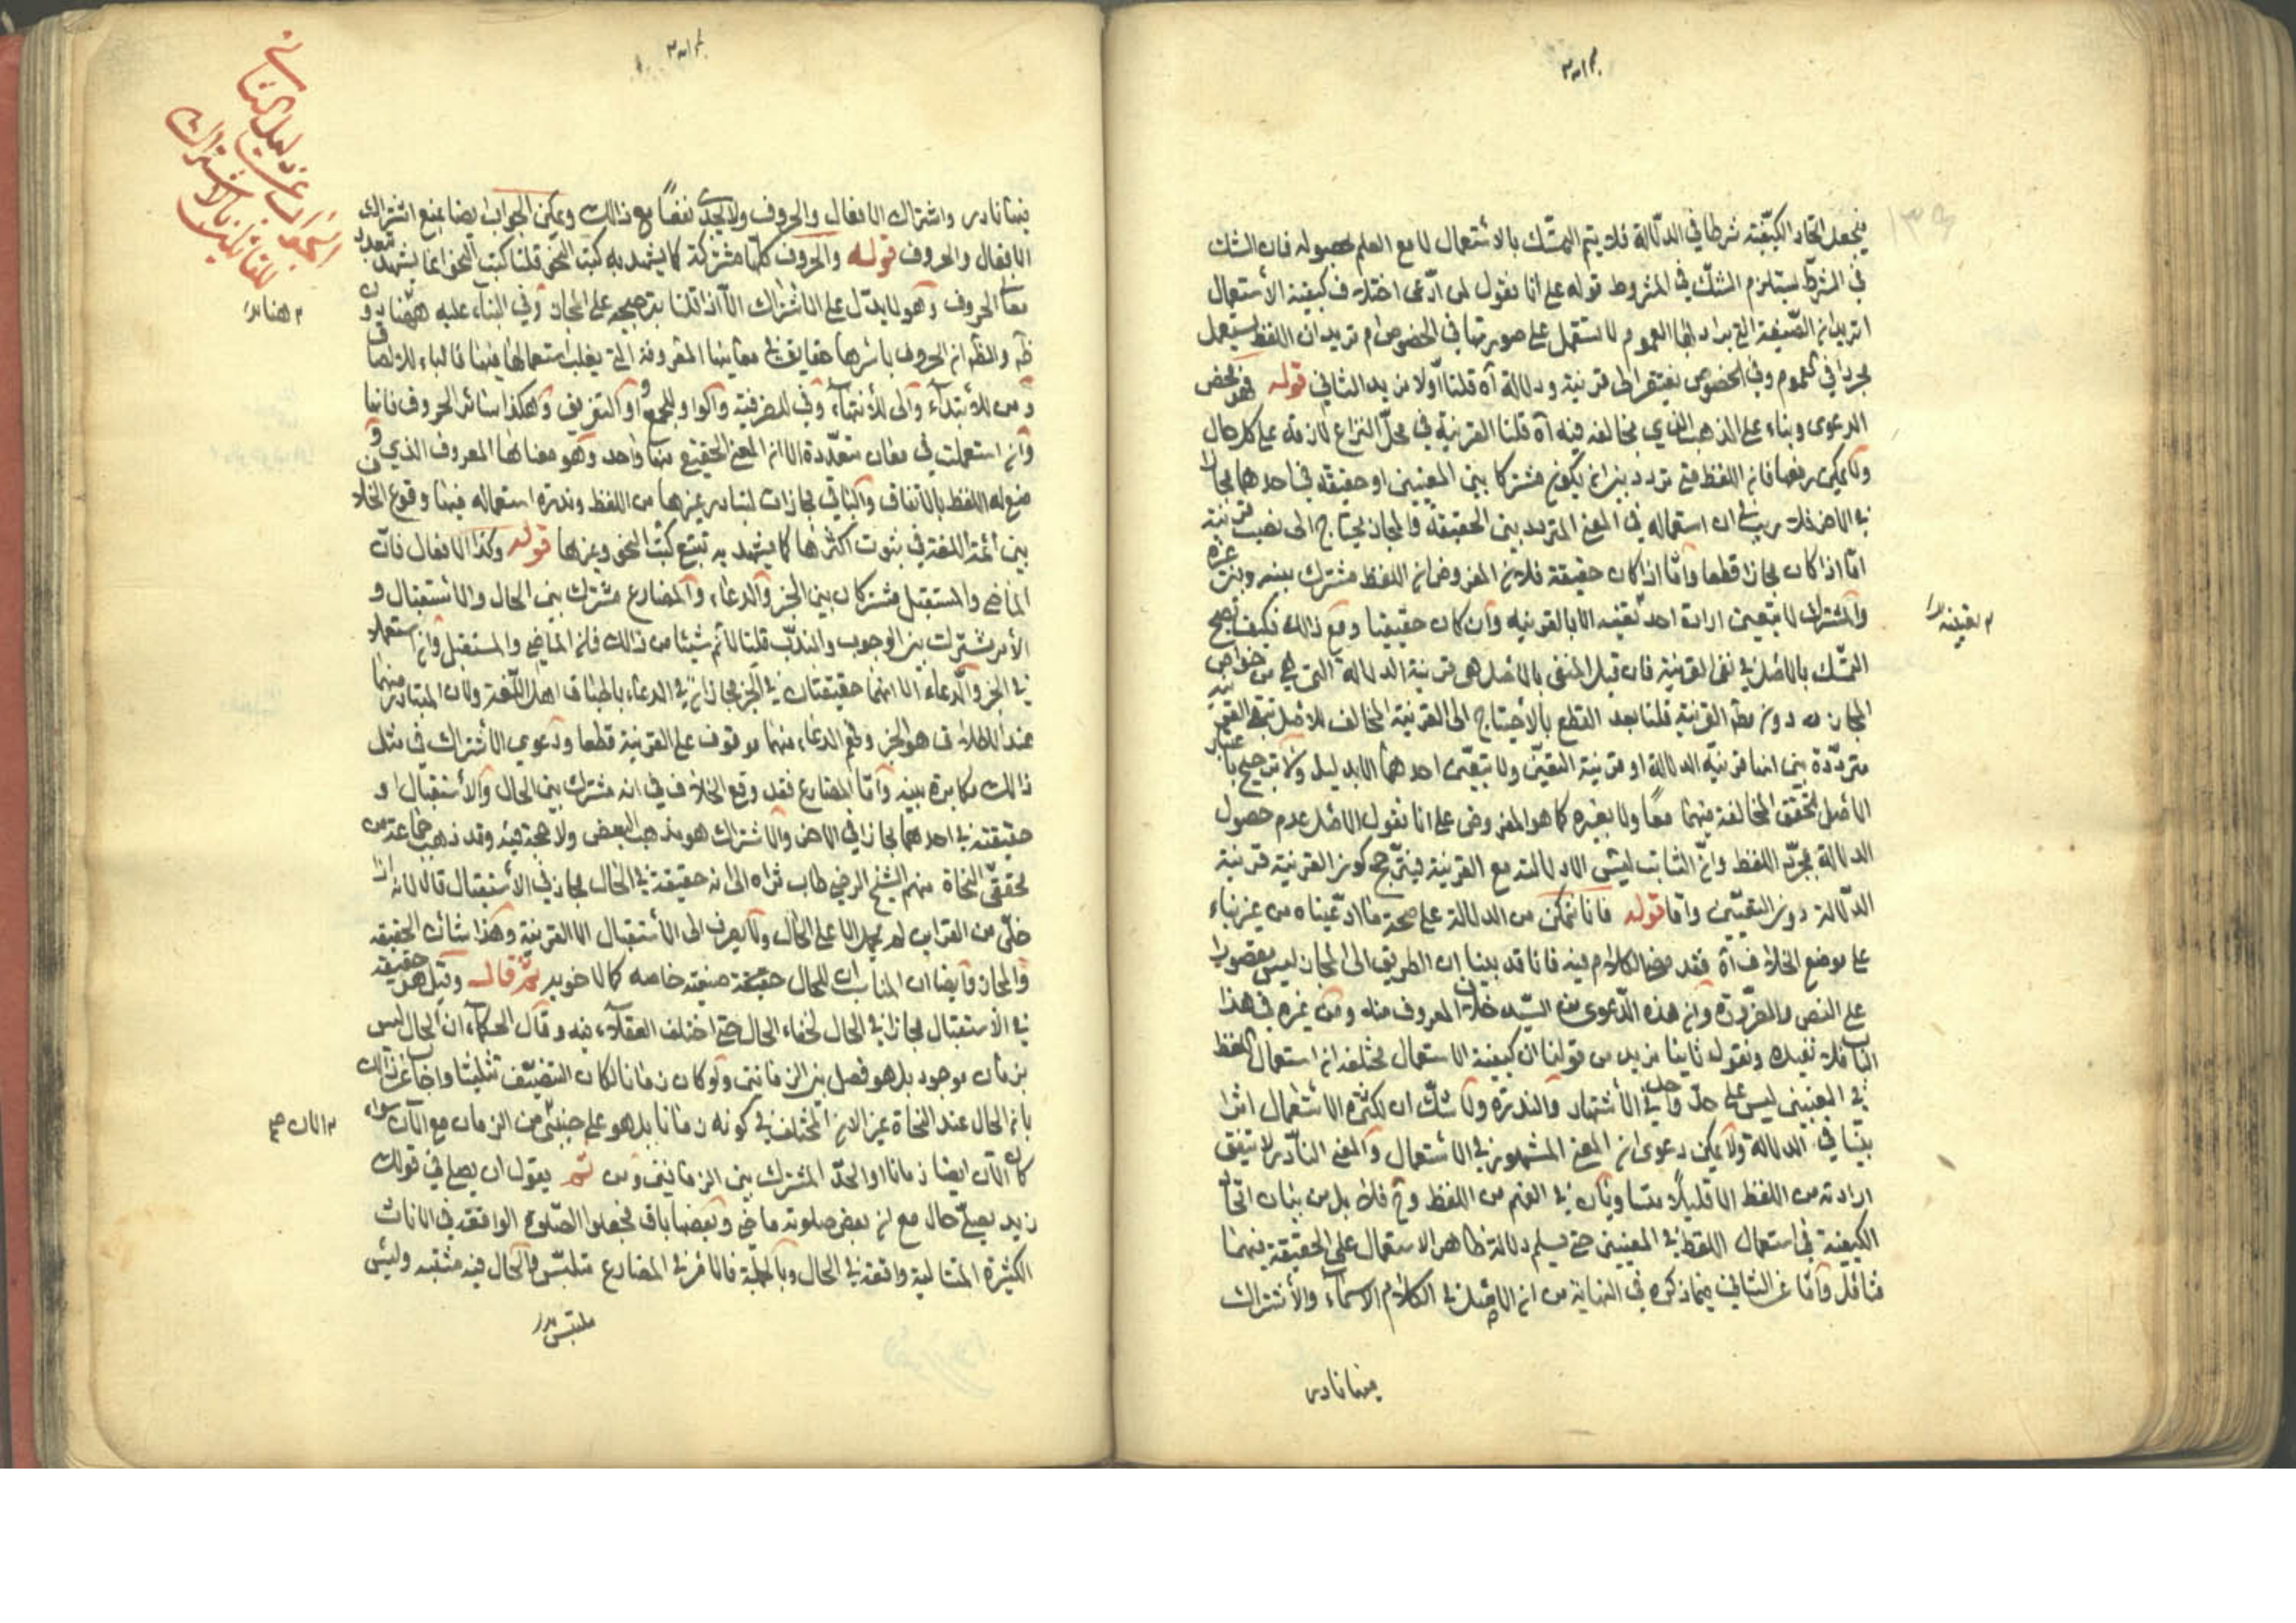 فيجعل اتحاد الكيفية شرطا في الدلالة فلا يتم التمسك بالاستعمال الا مع العلم بحصوله فان الشك
في الشرط يستلزم الشك في المشروط قوله على انا نقول لمن ادعى اختلاف كيفية الاستعمال
اتريد ان الصيغة التي يراد بها العموم لا تستعمل على صورتها في الخصوص ام تريد ان اللفظ يستعمل
مجردا في العموم وفي الخصوص يفتقر الى قرينة ودلالة آه قلنا اولا نريد الثاني قوله فهو محض
الدعوى وبناء على المذهب الذي يخالف فيه آه قلنا القرينة في محل النزاع لازمة على كل حال
ولا يمكن رفعها فان اللفظ متى تردد بين ان يكون مشتركا بين المعنيين او حقيقة في احدهما مجازا
في الآخر فلا ريب في ان استعماله في المعنى المتردد بين الحقيقة والمجاز يحتاج الى نصب قرينة
اما اذا كان مجازا قطعا واما اذا كان حقيقة فلان المفروض ان اللفظ مشترك بينه وبين غيره
والمشترك لا يتعين ارادة احد معنييه الا بالقرينة وان كان حقيقيا ومع ذلك فكيف يصح
التمسك بالاصل في نفي القرينة فان قيل المنفي بالاصل هي قرينة الدلالة التي هي من خواص
المجاز دون مطلق القرينة قلنا بعد القطع بالاحتياج الى القرينة المخالف للاصل تبقى القرينة
مترددة بين انها قرينة الدلالة او قرينة التعين ولا يتعين احدهما الا بدليل ولا ترجيح باعتبار
الاصل لتحقق المخالفة فيهما معا ولا بغيره كما هو المفروض على انا نقول الاصل عدم حصول
الدلالة بمجرد اللفظ وان الثابت ليس الا دلالته مع القرينة فيترجح كون القرينة قرينة
الدلالة دون التعيين واما قوله فانا نتمكن من الدلالة على صحة ما ادعيناه من غير بناء
على موضع الخلاف آه فقد مضى الكلام فيه فانا قد بينا ان الطريق الى المجاز ليس مقصورا
على النص والضرورة وان هذه الدعوى من السيد خلاف المعروف منه ومن غيره في هذا
الباب فلا نعيده ونقول ثانيا نريد من قولنا ان كيفية الاستعمال مختلفة ان استعمال اللفظ
في المعنيين ليس على حد واحد في الاشتهار والندرة ولا شك ان لكثرة الاستعمال اثرا
بينا في الدلالة ولا يمكن دعوى ان المعنى المشهور في الاستعمال والمعنى النادر لا يتفق
ارادته من اللفظ الا قليلا متساويان في الفهم من اللفظ وح فلا بد من بيان اتحاد
الكيفية في استعمال اللفظ في المعنيين حتى يسلم دلالة ظاهر الاستعمال على الحقيقة فيهما
فتامل واما عن الثاني فيما ذكره في النهاية من ان الاصل في الكلام الاسماء والاشتراك
فيها نادر
فيها نادر واشتراك الافعال والحروف ولا يجدي نفعا مع ذلك ويمكن الجواب ايضا بمنع اشتراك
الافعال والحروف قوله والحروف كلها مشتركة كما يشهد به كتب النحو قلنا كتب النحو انما يشهد بتعدد
معاني الحروف وهو لا يدل على الاشتراك الا اذا قلنا بترجيحه على المجاز وفي البناء عليه ههنا دور
ظه والظه ان الحروف باسرها حقايق في معانيها المعروفة التي يغلب استعمالها فيها فالباء للالصاق
ومن للابتداء والى للانتهاء وفي للظرفية والواو للجمع او التعريف وهكذا سائر الحروف فانها
وان استعملت في معان متعددة الا ان المعنى الحقيقي منها واحد وهو معناها المعروف الذي
وضع له اللفظ بالاتفاق والباقي مجازات لتبادر غيرها من اللفظ وندرة استعماله فيها ووقوع الخلاف
بين ائمة اللغة في ثبوت اكثرها كما يشهد به تتبع كتب النحو وغيرها قوله وكذا الافعال فان
الماضي والمستقبل مشتركان بين الخبر والدعاء والمضارع مشترك بين الحال والاستقبال و
الامر مشترك بين الوجوب والندب قلنا لا نم شيئا من ذلك فان الماضي والمستقبل وان استعملا
في الخبر والدعاء الا انهما حقيقتان في الخبر مجازان في الدعاء باطباق اهل اللغة ولان المتبادر منهما
عند الاطلاق هو الخبر وفهم الدعاء منهما موقوف على القرينة قطعا ودعوى الاشتراك في مثل
ذلك مكابرة بينة واما المضارع فقد وقع الخلاف في انه مشترك بين الحال والاستقبال او
حقيقة في احدهما مجاز في الآخر والاشتراك هو مذهب البعض ولا حجة فيه وقد ذهب جماعة من
محققي النحاة منهم الشيخ الرضي طاب ثراه الى انه حقيقة في الحال مجاز في الاستقبال قال لانه اذا
خلى من القراين لم يحمل الا على الحال ولا يصرف الى الاستقبال الا لقرينة وهذا شان الحقيقة
والمجاز وايضا ان المناسب ان للحال صيغة خاصة كما لاخويه ثم قال وقيل هو حقيقة
في الاستقبال مجاز في الحال لخفاء الحال حتى اختلف العقلاء فيه وقال الحكماء ان الحال ليس
بزمان موجود بل هو فصل بين الزمانين ولو كان زمانا لكان التنصيف تثليثا واجاب عن ذلك
بان الحال عند النحاة غير الآن المختلف في كونه زمانا بل هو على جنبتي من الزمان مع الآن سواء
كان الآن ايضا زمانا او الحد المشترك بين الزمانين ومن ثم يقول ان يصلي في قولك
زيد يصلي حال مع ان بعض صلوته ماض وبعضها باق فجعلوا الصلوة الواقعة في الآنات
الكثيرة المتتالية واقعة في الحال وبالجملة فالامر في المضارع متلبس فالحال فيه مشتبه وليس
ملتبس
الجواب عن دليل الثاني
للقائلين بالاشتراك